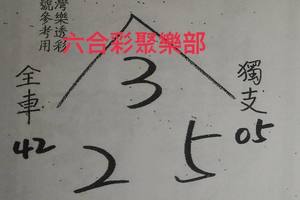 灣樂透彩
號參考用
六合彩聚樂部
全車
42
3
獨支
05
2
5